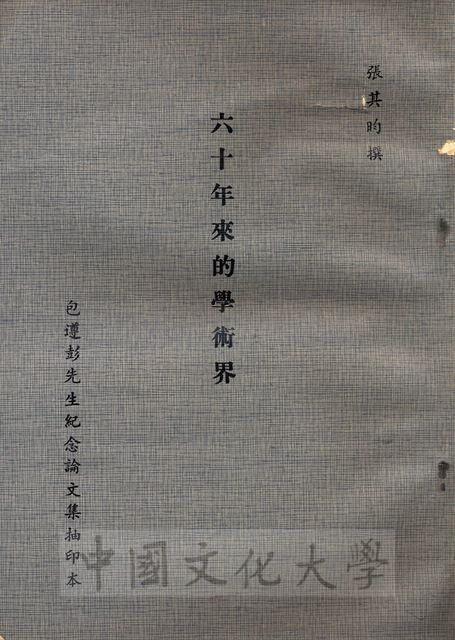 張其昀撰
六十年來的學術界
包遵彭先生紀念論文集抽印本
中國文化大學